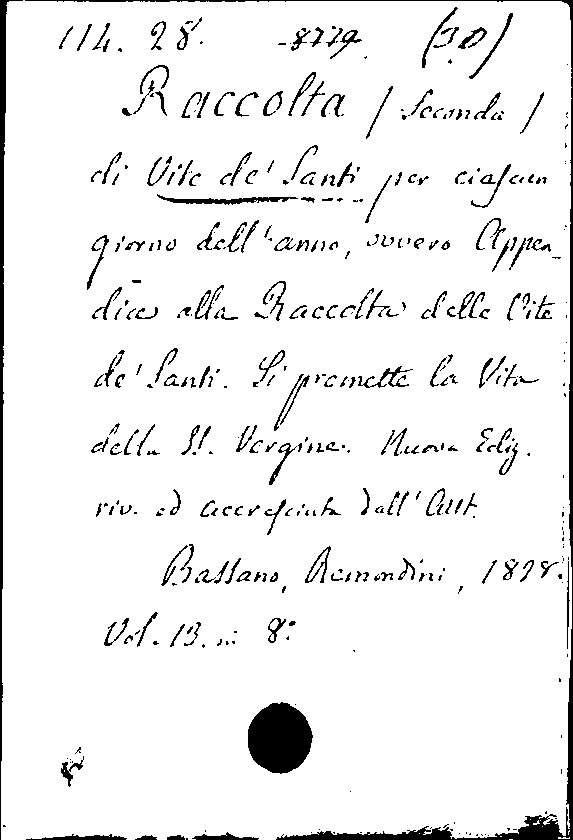 114. 28. -8779. (30)
Raccolta / Seconda /
di Vite de' Santi per ciascun
giorno dell'anno, ovvero Appen-
dice alla Raccolta delle Vite
de' Santi. Si premette la Vita
della SS. Vergine. Nuova Ediz.
riv. ed accresciuta dall'Aut.
Bassano, Remondini, 1828.
Vol. 13. in 8°